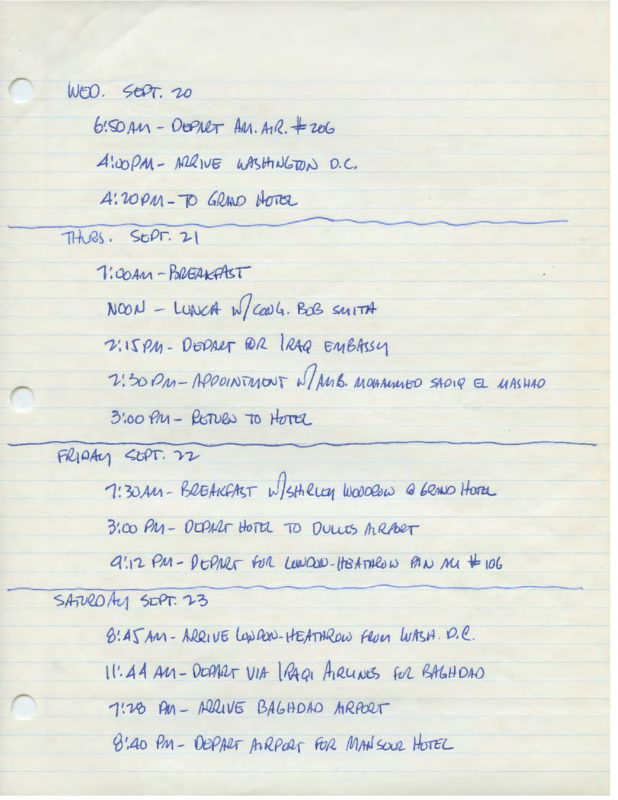 WED. SEPT. 20
6:50 AM - DEPART AM. AIR. #206
4:00 PM - ARRIVE WASHINGTON D.C.
4:20 PM - TO GRAND HOTEL
THURS. SEPT. 21
7:00 AM - BREAKFAST
NOON - LUNCH W/ CONG. BOB SMITH
2:15 PM - DEPART FOR IRAQ EMBASSY
2:30 PM - APPOINTMENT W/ AMB. MOHAMMED SADIQ EL MASHAD
3:00 PM - RETURN TO HOTEL
FRIDAY SEPT. 22
7:30 AM - BREAKFAST W/ SHIRLEY WOODROW @ GRAND HOTEL
3:00 PM - DEPART HOTEL TO DULLES AIRPORT
9:12 PM - DEPART FOR LONDON-HEATHROW PAN AM #106
SATURDAY SEPT. 23
8:45 AM - ARRIVE LONDON-HEATHROW FROM WASH. D.C.
11:44 AM - DEPART VIA IRAQI AIRLINES FOR BAGHDAD
7:28 PM - ARRIVE BAGHDAD AIRPORT
8:40 PM - DEPART AIRPORT FOR MANSOUR HOTEL